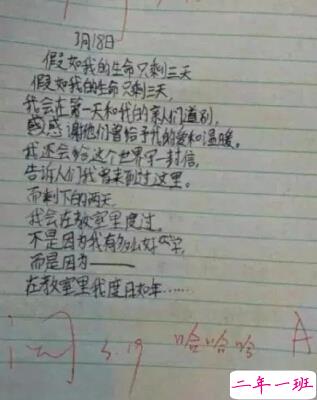 3月18日
假如我的生命只剩三天
假如我的生命只剩三天,
我会在第一天和我的亲人们道别,
感谢他们曾给予我的爱和温暖。
我还会给这个世界写一封信,
告诉人们我曾来到过这里。
而剩下的两天
我会在教室里度过。
不是因为我有多么好学,
而是因为——
在教室里我度日如年……
阅 3.19 哈哈哈 A
二年一班